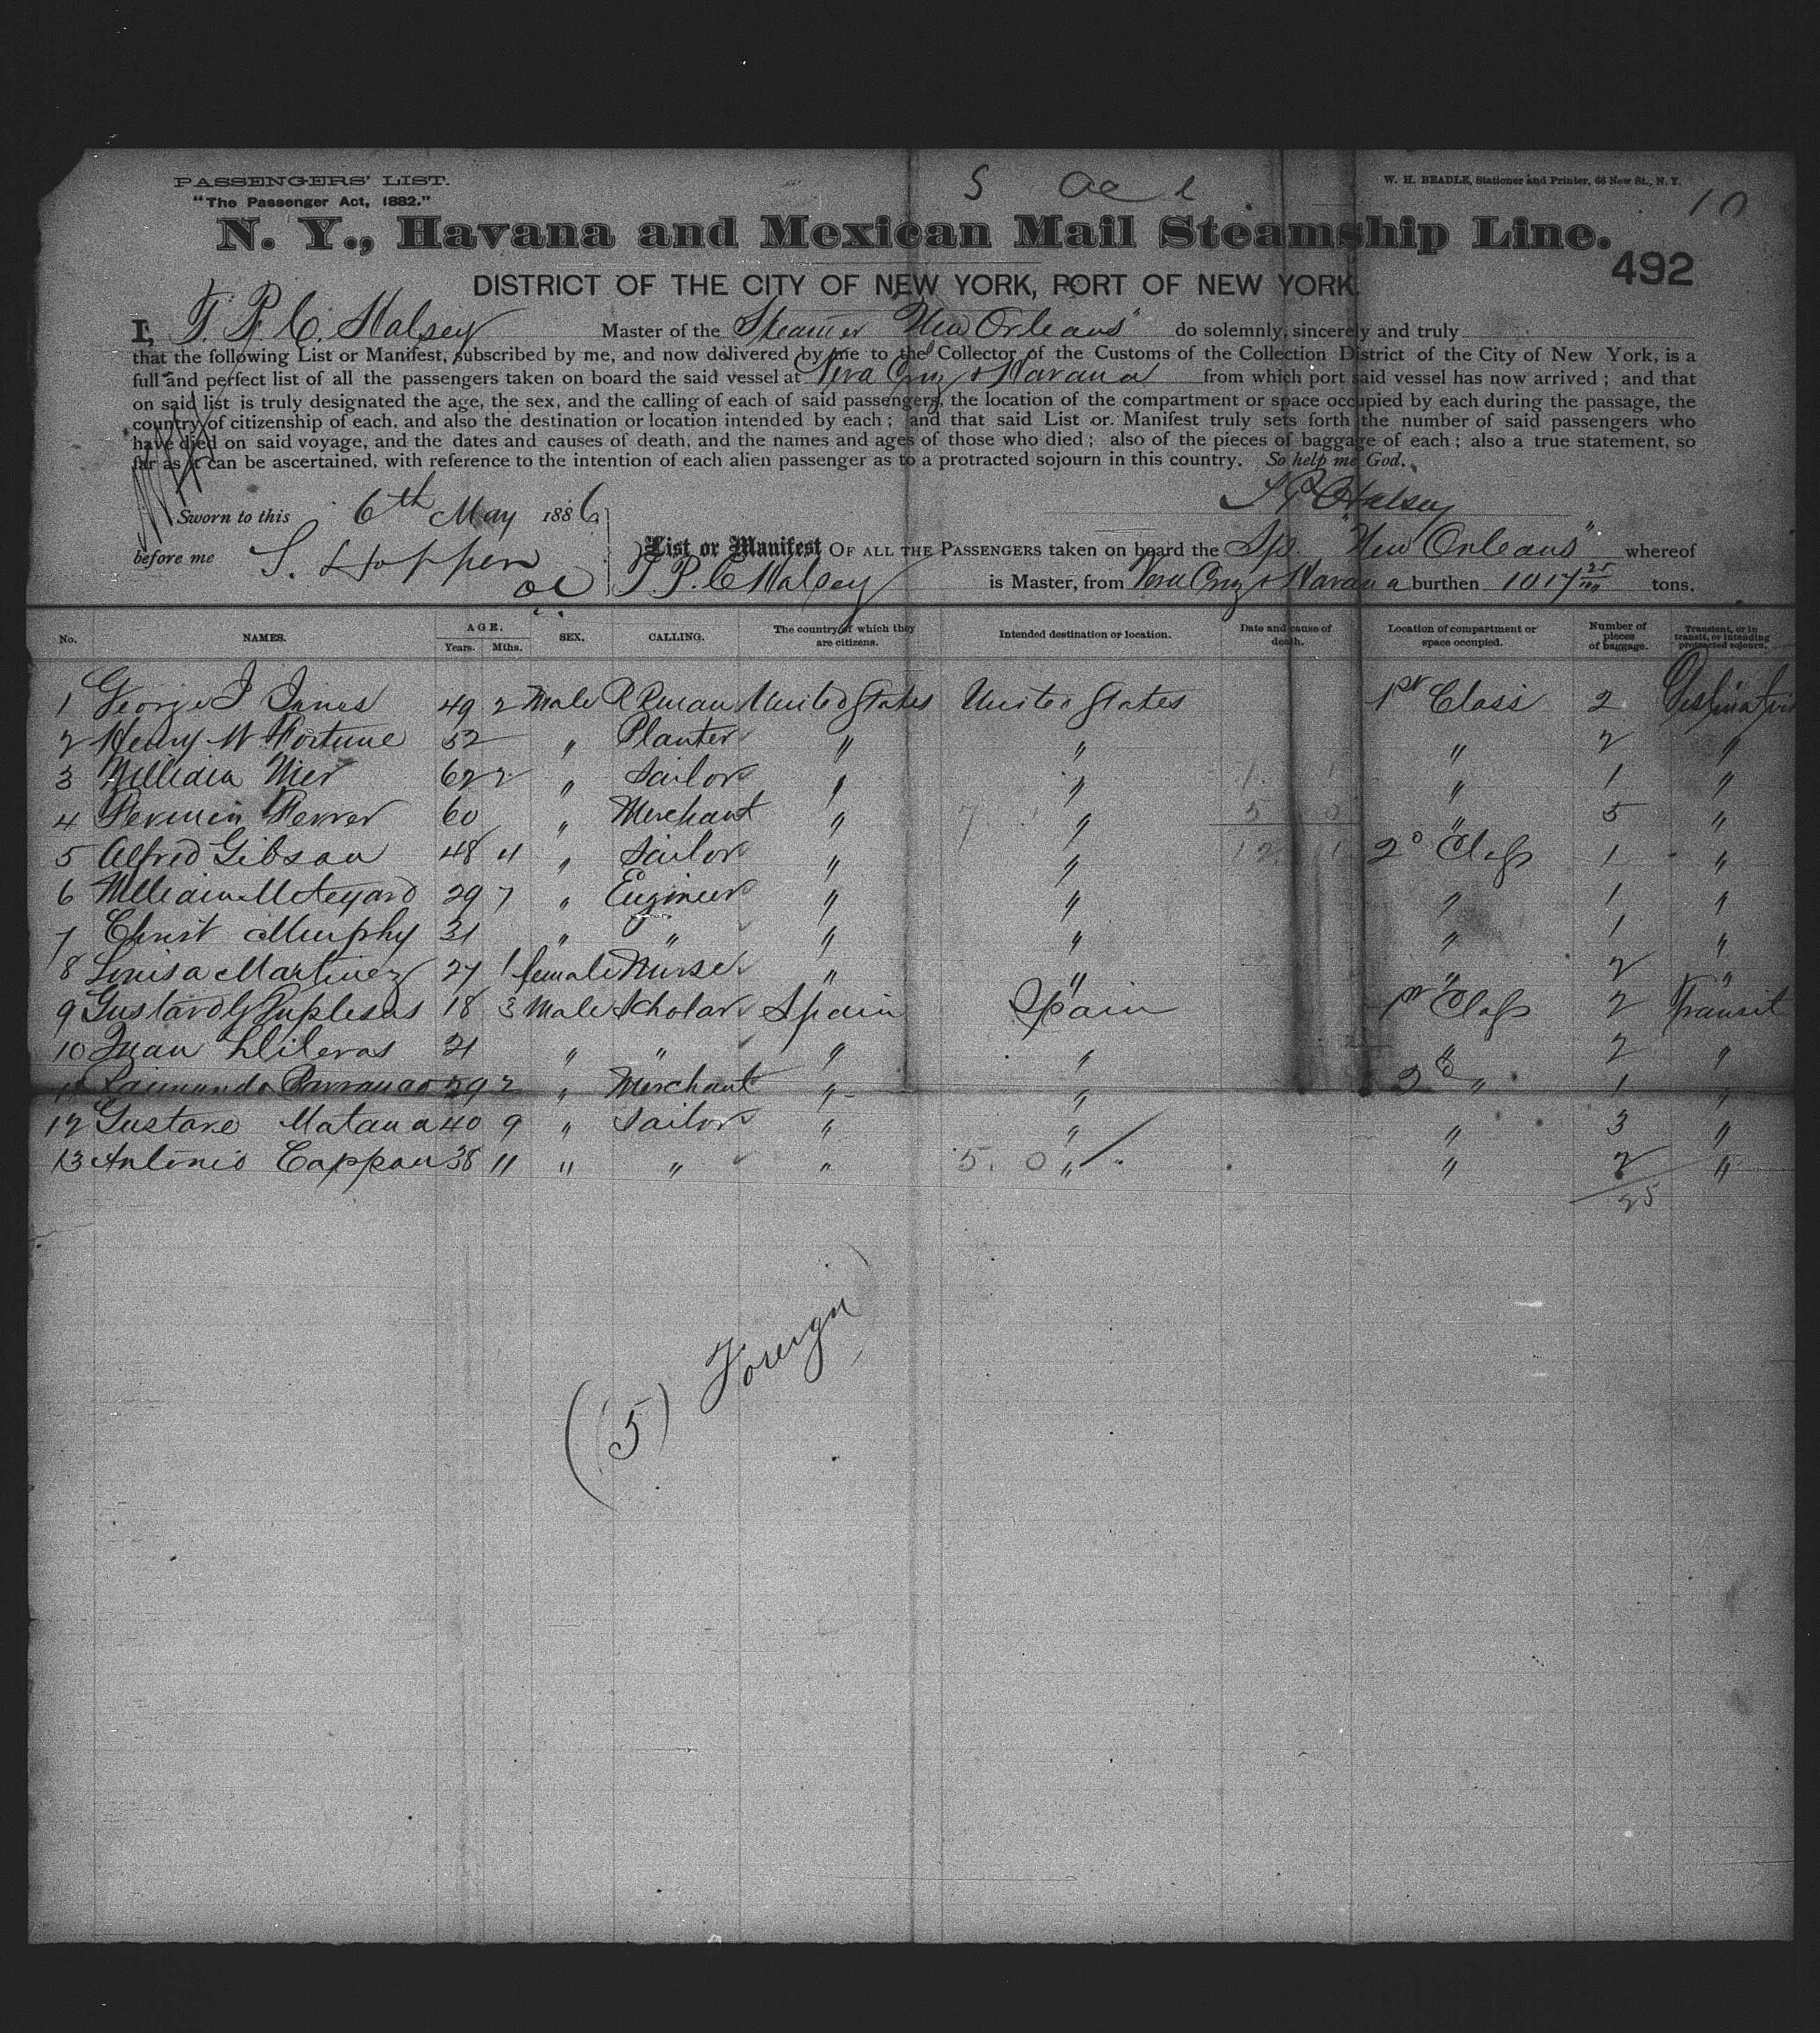 PASSENGERS' LIST.
"The Passenger Act, 1882."
W. H. BEADLE, Stationer and Printer, 66 New St., N. Y.
10
N. Y., Havana and Mexican Mail Steamship Line.
492
DISTRICT OF THE CITY OF NEW YORK, PORT OF NEW YORK.
I, T. P. C. Halsey Master of the Steamer "New Orleans" do solemnly, sincerely and truly
that the following List or Manifest, subscribed by me, and now delivered by me to the Collector of the Customs of the Collection District of the City of New York, is a
full and perfect list of all the passengers taken on board the said vessel at Vera Cruz & Havana from which port said vessel has now arrived; and that
on said list is truly designated the age, the sex, and the calling of each of said passengers, the location of the compartment or space occupied by each during the passage, the
country of citizenship of each, and also the destination or location intended by each; and that said List or Manifest truly sets forth the number of said passengers who
have died on said voyage, and the dates and causes of death, and the names and ages of those who died; also of the pieces of baggage of each; also a true statement, so
far as it can be ascertained, with reference to the intention of each alien passenger as to a protracted sojourn in this country. So help me God.
T P C Halsey
Sworn to this 6th May 1886
before me S. Hoppen
List or Manifest OF ALL THE PASSENGERS taken on board the Sp. "New Orleans" whereof
T. P. C Halsey is Master, from Vera Cruz & Havana burthen 1017 25/100 tons.
No. NAMES. AGE. Years. Mths. SEX. CALLING. The country of which they are citizens. Intended destination or location. Date and cause of death. Location of compartment or space occupied. Number of pieces of baggage. Transient, or in transit, or intending protracted sojourn.
1 George J Jones 49 2 Male United States United States 1st Class 2 Destination
2 Henry W Fortune 52 " Planter " " " 2 "
3 William Wier 62 2 " Sailor " " " 1 "
4 Fermin Ferrer 60 " Merchant " " " 5 "
5 Alfred Gibson 48 4 " Sailor " " 2d Class 1 "
6 William 29 7 " Engineer " " " 1 "
7 Christ Murphy 31 " " " " " 1 "
8 Louisa Martinez 27 1 female Nurse " " " 2 "
9 18 3 Male Scholar Spain Spain 1st Class 2 Transit
10 Juan 21 " " " " " 2 "
11 Raimundo 29 2 " Merchant " " 2d " 1 "
12 Gustave Matana 40 9 " Sailor " " " 3 "
13 Antonio Cappau 38 11 " " " " " 2 "
25
(5) Foreign